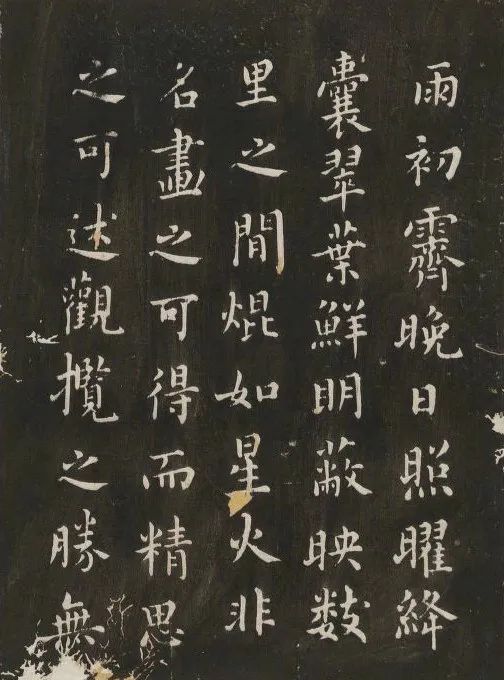 雨初霽晚日照曜絳
囊翠葉鮮明蔽映数
里之間焜如星火非
名畫之可得而精思
之可述觀攬之勝無